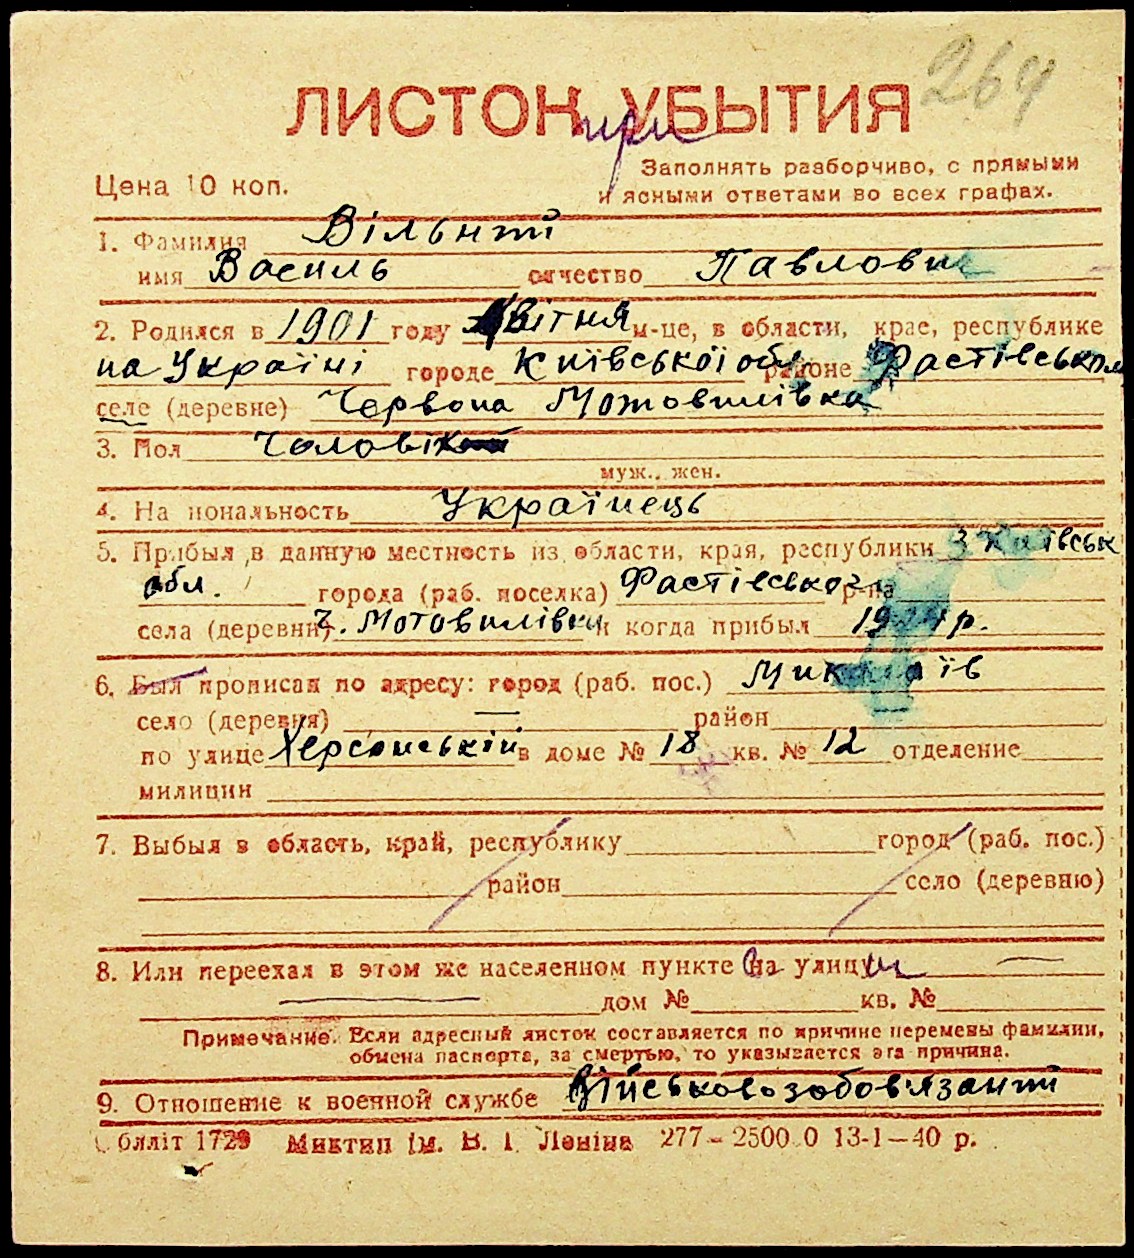 264
ЛИСТОК УБЫТИЯ
при
Цена 10 коп.
Заполнять разборчиво, с прямыми
и ясными ответами во всех графах.
1. Фамилия Вільний
имя Василь отчество Павлович
2. Родился в 1901 году Квітня м-це, в области, крае, республике
на Україні городе Київської обл районе Фастівськом
селе (деревне) Червона Мотовилівка
3. Пол Чоловік
муж., жен.
4. На иональность Українець
5. Прибыл в данную местность из области, края, республики З Київськ
обл. города (раб. поселка) Фастівського р-на
села (деревни) Ч. Мотовилівки и когда прибыл 1924 р.
6. Был прописан по адресу: город (раб. пос.) Миколаїв
село (деревня) — район —
по улице Херсонській в доме № 18 кв. № 12 отделение
милиции
7. Выбыл в область, край, республику город (раб. пос.)
район село (деревню)
8. Или переехал в этом же населенном пункте на улицу —
— дом № кв. №
Примечание. Если адресный листок составляется по причине перемены фамилии,
обмена паспорта, за смертью, то указывается эта причина.
9. Отношение к военной службе Військовозобов'язаний
Облліт 1729 Миктип ім. В. І. Леніна 277—2500 0 13-1—40 р.